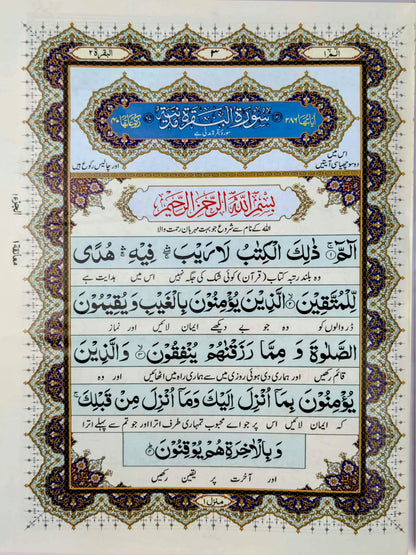 البقرة ٢
٣
الٓمّٓ ١
سُوْرَةُ الْبَقَرَةِ مَدَنِيَّةٌ
اٰيَاتُهَا ٢٨٦
رُكُوْعَاتُهَا ٤٠
سورۂ بقرہ مدنی ہے
اس میں
دو سو چھیاسی آیتیں
اور چالیس رکوع ہیں
بِسْمِ اللّٰهِ الرَّحْمٰنِ الرَّحِيْمِ
اللہ کے نام سے شروع جو بہت مہربان رحمت والا
الٓمّٓ ۚ﴿۱﴾ ذٰلِكَ الْكِتٰبُ لَا رَيْبَ ۛ فِيْهِ ۛ هُدًى
وہ بلند رتبہ کتاب (قرآن) کوئی شک کی جگہ نہیں اس میں ہدایت ہے
لِّلْمُتَّقِيْنَ ۙ﴿۲﴾ الَّذِيْنَ يُؤْمِنُوْنَ بِالْغَيْبِ وَيُقِيْمُوْنَ
ڈر والوں کو وہ جو بے دیکھے ایمان لائیں اور نماز
الصَّلٰوةَ وَ مِمَّا رَزَقْنٰهُمْ يُنْفِقُوْنَ ۙ﴿۳﴾ وَالَّذِيْنَ
قائم رکھیں اور ہماری دی ہوئی روزی میں سے ہماری راہ میں اٹھائیں اور وہ
يُؤْمِنُوْنَ بِمَاۤ اُنْزِلَ اِلَيْكَ وَمَاۤ اُنْزِلَ مِنْ قَبْلِكَ ۚ
کہ ایمان لائیں اس پر جو اے محبوب تمہاری طرف اترا اور جو تم سے پہلے اترا
وَ بِالْاٰخِرَةِ هُمْ يُوْقِنُوْنَ ؕ﴿۴﴾
اور آخرت پر یقین رکھیں
منزل ١